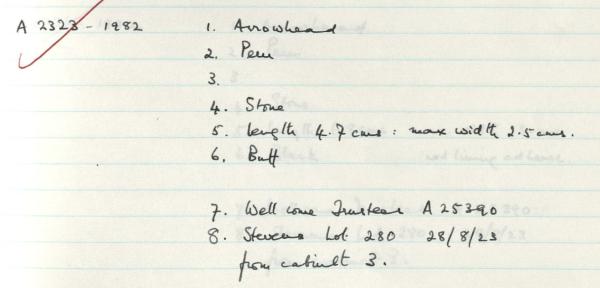 A 2323 - 1982 1. Arrowhead
2. Peru
3.
4. Stone
5. Length 4.7 cms : max width 2.5 cms.
6. Buff
7. Wellcome Trustees A 25390
8. Stevens Lot 280 28/8/23
from cabinet 3.